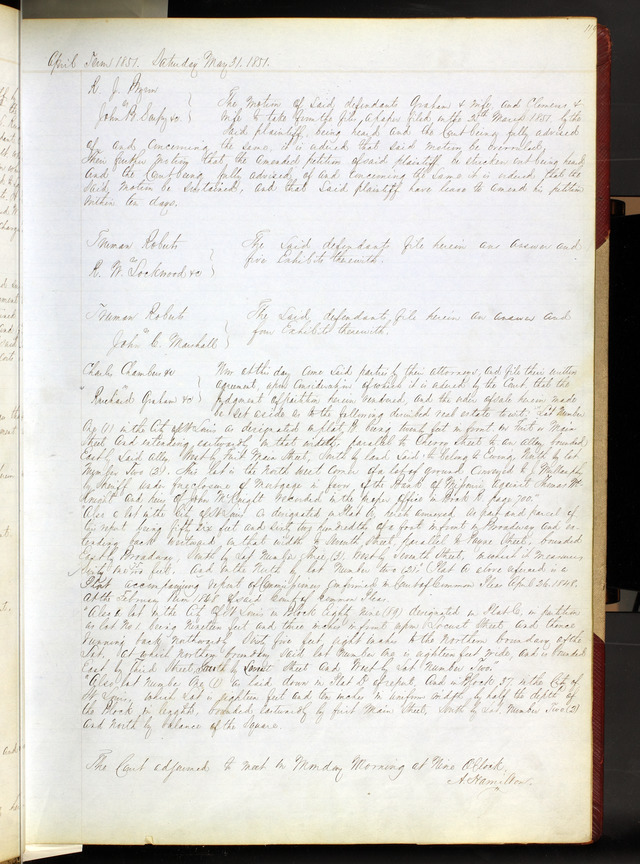 April Term 1851. Saturday May 31. 1851.
R. J.
John &c } The Motion of Said defendants Graham & wife, and Clemens &
Wife to take from the file, a paper filed on the 25th March 1851 by the
Said plaintiff, being heard and the Court being fully advised
of and concerning the same, it is ordered that said motion be overruled,
their further motion that the amended petition of said plaintiff be stricken out being heard
and the Court being fully advised of and concerning the same it is ordered that the
Said Motion be sustained, and that Said plaintiff have leave to amend his petition
within ten days.
Truman Roberts
vs
R. W. Lockwood &c } The Said defendants file herein an answer and
five Exhibits therewith.
Truman Roberts
vs
John C. Marshall } The Said defendants, file herein an answer and
four Exhibits therewith.
Charles Chambers &c
vs
Richard Graham &c } Now at this day come Said parties by their attorneys, and file their written
agreement, upon consideration of which it is ordered by the Court that the
judgment of partition herein rendered, and the order of sale herein made
be set aside as to the following described real estate to wit; "Lot Number
One (1) in the City of St Louis as designated on plat
Street and extending eastwardly in that width parallel to Street to an alley, bounded
East by Said alley West by Main Street, South by land Said to belong to North by lot
Number two (2). This lot is the North West Corner of a lot of ground conveyed to
Sheriff under foreclosure of Mortgage in favor of the Bank of against Thomas
and heirs of John McKnight recorded in the proper office in Book page 700."
"Also a lot in the City of St Louis as designated on Plat
of report, being fifty six feet and in front on Broadway and ex-
tending back westward in that width to Seventh Street parallel to Street, bounded
East by Broadway South by Lot Number three (3), West by Seventh Street,
feet, And on the North by lot Number two (2)" Plat above referred is a
Plat accompanying report of Commissioners Confirmed in Court of Common Pleas April 26. 1848.
At the February Term 1848 of said Court of Common Pleas.
"Also a lot in the City of St Louis in Block Eighty nine (89) designated on Plat in partition
as Lot No 1 being Nineteen feet and three inches in front upon Locust Street, and thence
running back northwardly five feet eight inches to the Northern boundary of the
Lot at which northern boundary said lot Number One is eighteen feet wide, and is bounded
East by third Street South by Locust Street and West by Lot Number Two."
"Also lot Number One (1) as laid down on Plat D of report, and in Block 37 in the City of
St Louis, which lot is eighteen feet and ten inches in uniform width by half the depth of
the Block in length, bounded, Eastwardly by first Main Street, South by Lot Number Two (2)
and North by balance of the Square.
The Court adjourned to meet on Monday Morning at Nine O'Clock.
A. Hamilton.